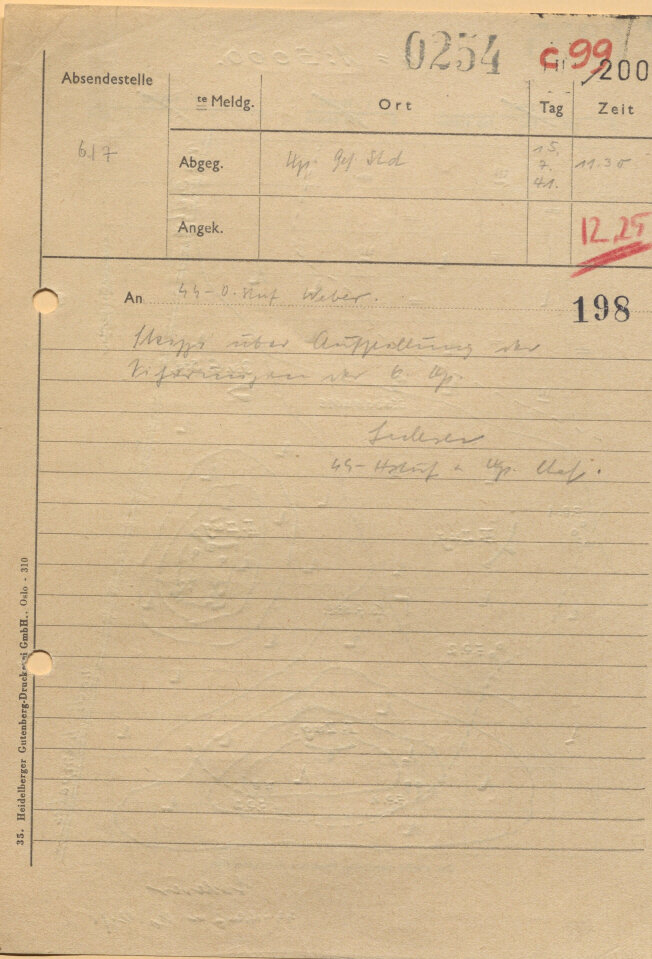 0254
c 99
200
Absendestelle
te Meldg.
Ort
Tag
Zeit
6/7
Abgeg.
Kp. Gef. Std
15.
7.
41.
11.30
Angek.
12.25
An SS-O.Stuf Weber.
198
Skizze über Aufstellung der
Sicherungen der 6. Kp.
SS-Hstuf u. Kp. Chef.
35. Heidelberger Gutenberg-Druckerei GmbH., Oslo - 310